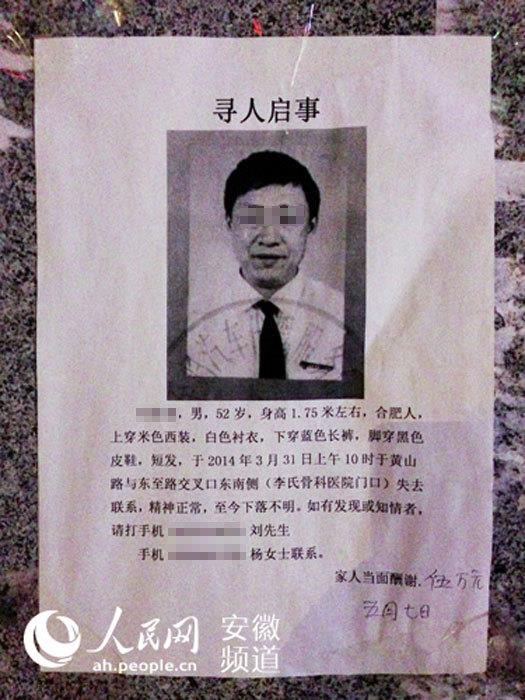 寻人启事
汽车
，男，52 岁，身高 1.75 米左右，合肥人，
上穿米色西装，白色衬衣，下穿蓝色长裤，脚穿黑色
皮鞋，短发，于 2014 年 3 月 31 日上午 10 时于黄山
路与东至路交叉口东南侧（李氏骨科医院门口）失去
联系，精神正常，至今下落不明。如有发现或知情者，
请打手机 刘先生
手机 杨女士联系。
家人当面酬谢.伍万元
五月七日
人民网 安徽频道
ah.people.cn